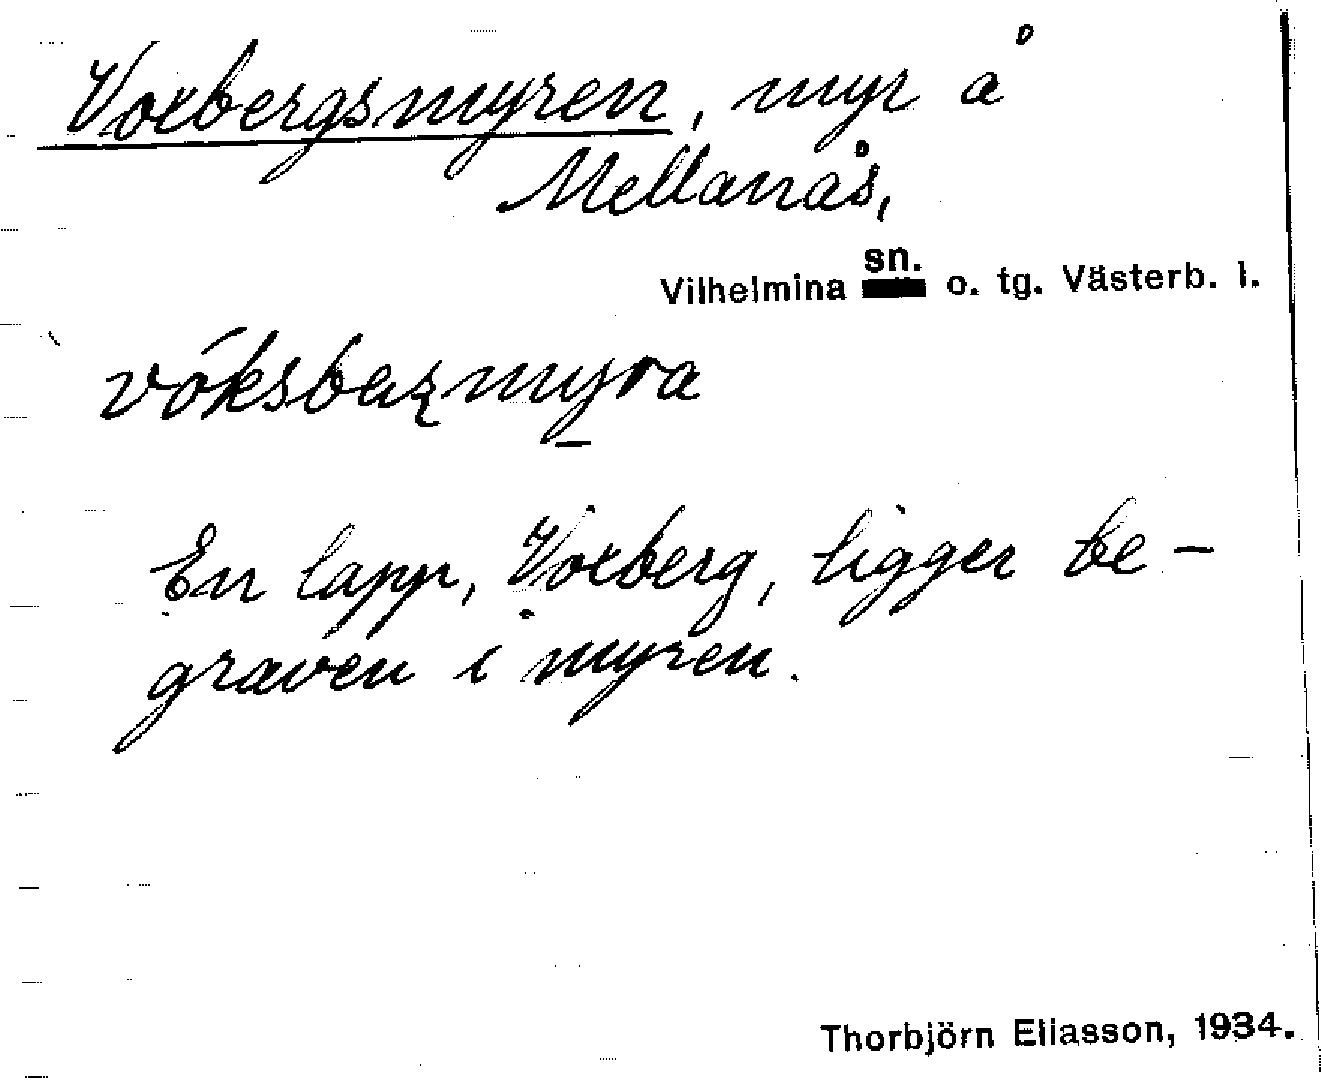 Voxbergsmyren, myr å
Mellanås,
Vilhelmina sn. o. tg. Västerb. l.
vóksbaʐmyra
En lapp, Voxberg, ligger be-
graven i myren.
Thorbjörn Eliasson, 1934.